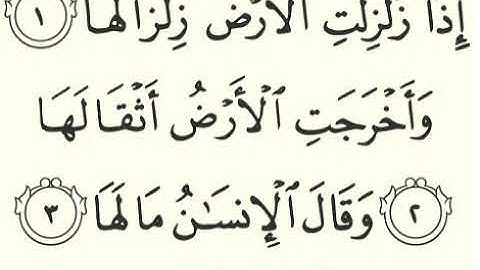 إِذَا زُلْزِلَتِ ٱلْأَرْضُ زِلْزَالَهَا ١
وَأَخْرَجَتِ ٱلْأَرْضُ أَثْقَالَهَا
٢ وَقَالَ ٱلْإِنسَٰنُ مَا لَهَا ٣